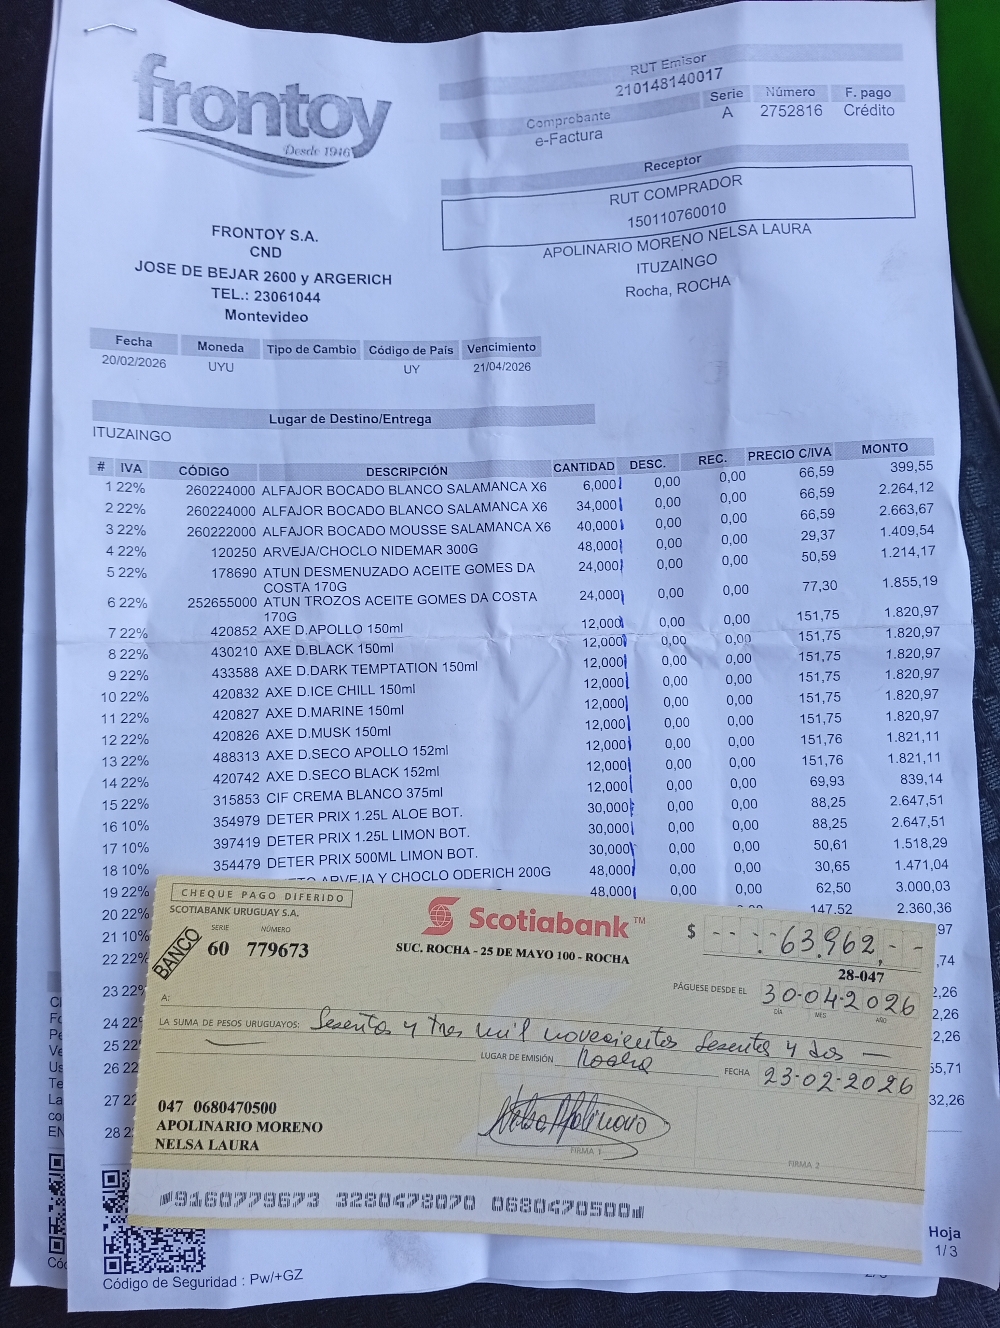 frontoy
Desde 1946
RUT Emisor
210148140017
Comprobante Serie Número F. pago
e-Factura A 2752816 Crédito
Receptor
RUT COMPRADOR
150110760010
APOLINARIO MORENO NELSA LAURA
ITUZAINGO
Rocha, ROCHA
FRONTOY S.A.
CND
JOSE DE BEJAR 2600 y ARGERICH
TEL.: 23061044
Montevideo
Fecha Moneda Tipo de Cambio Código de País Vencimiento
20/02/2026 UYU UY 21/04/2026
Lugar de Destino/Entrega
ITUZAINGO
# IVA CÓDIGO DESCRIPCIÓN CANTIDAD DESC. REC. PRECIO C/IVA MONTO
1 22% 260224000 ALFAJOR BOCADO BLANCO SALAMANCA X6 6,000 0,00 0,00 66,59 399,55
2 22% 260224000 ALFAJOR BOCADO BLANCO SALAMANCA X6 34,000 0,00 0,00 66,59 2.264,12
3 22% 260222000 ALFAJOR BOCADO MOUSSE SALAMANCA X6 40,000 0,00 0,00 66,59 2.663,67
4 22% 120250 ARVEJA/CHOCLO NIDEMAR 300G 48,000 0,00 0,00 29,37 1.409,54
5 22% 178690 ATUN DESMENUZADO ACEITE GOMES DA 24,000 0,00 0,00 50,59 1.214,17
COSTA 170G
6 22% 252655000 ATUN TROZOS ACEITE GOMES DA COSTA 24,000 0,00 0,00 77,30 1.855,19
170G
7 22% 420852 AXE D.APOLLO 150ml 12,000 0,00 0,00 151,75 1.820,97
8 22% 430210 AXE D.BLACK 150ml 12,000 0,00 0,00 151,75 1.820,97
9 22% 433588 AXE D.DARK TEMPTATION 150ml 12,000 0,00 0,00 151,75 1.820,97
10 22% 420832 AXE D.ICE CHILL 150ml 12,000 0,00 0,00 151,75 1.820,97
11 22% 420827 AXE D.MARINE 150ml 12,000 0,00 0,00 151,75 1.820,97
12 22% 420826 AXE D.MUSK 150ml 12,000 0,00 0,00 151,75 1.820,97
13 22% 488313 AXE D.SECO APOLLO 152ml 12,000 0,00 0,00 151,76 1.821,11
14 22% 420742 AXE D.SECO BLACK 152ml 12,000 0,00 0,00 151,76 1.821,11
15 22% 315853 CIF CREMA BLANCO 375ml 12,000 0,00 0,00 69,93 839,14
16 10% 354979 DETER PRIX 1.25L ALOE BOT. 30,000 0,00 0,00 88,25 2.647,51
17 10% 397419 DETER PRIX 1.25L LIMON BOT. 30,000 0,00 0,00 88,25 2.647,51
18 10% 354479 DETER PRIX 500ML LIMON BOT. 30,000 0,00 0,00 50,61 1.518,29
19 22% ARVEJA Y CHOCLO ODERICH 200G 48,000 0,00 0,00 30,65 1.471,04
20 22% 48,000 0,00 0,00 62,50 3.000,03
21 10% 147,52 2.360,36
22 22% 97
,74
23 22% 2,26
24 22% 2,26
25 22 2,26
26 22 55,71
27 22 32,26
28 2
CHEQUE PAGO DIFERIDO
SCOTIABANK URUGUAY S.A.
BANCO
SERIE NÚMERO
60 779673
Scotiabank™
SUC. ROCHA - 25 DE MAYO 100 - ROCHA
$ - - . - 63.962, - -
28-047
PÁGUESE DESDE EL 30-04-2026
DÍA MES AÑO
A:
LA SUMA DE PESOS URUGUAYOS: Sesenta y tres mil novecientos sesenta y dos —
LUGAR DE EMISIÓN Rocha FECHA 23-02-2026
047 0680470500
APOLINARIO MORENO
NELSA LAURA
Nelsa Apolinario
FIRMA 1
FIRMA 2
9160779673 3280478070 0680470500
Código de Seguridad : Pw/+GZ
Hoja
1/3